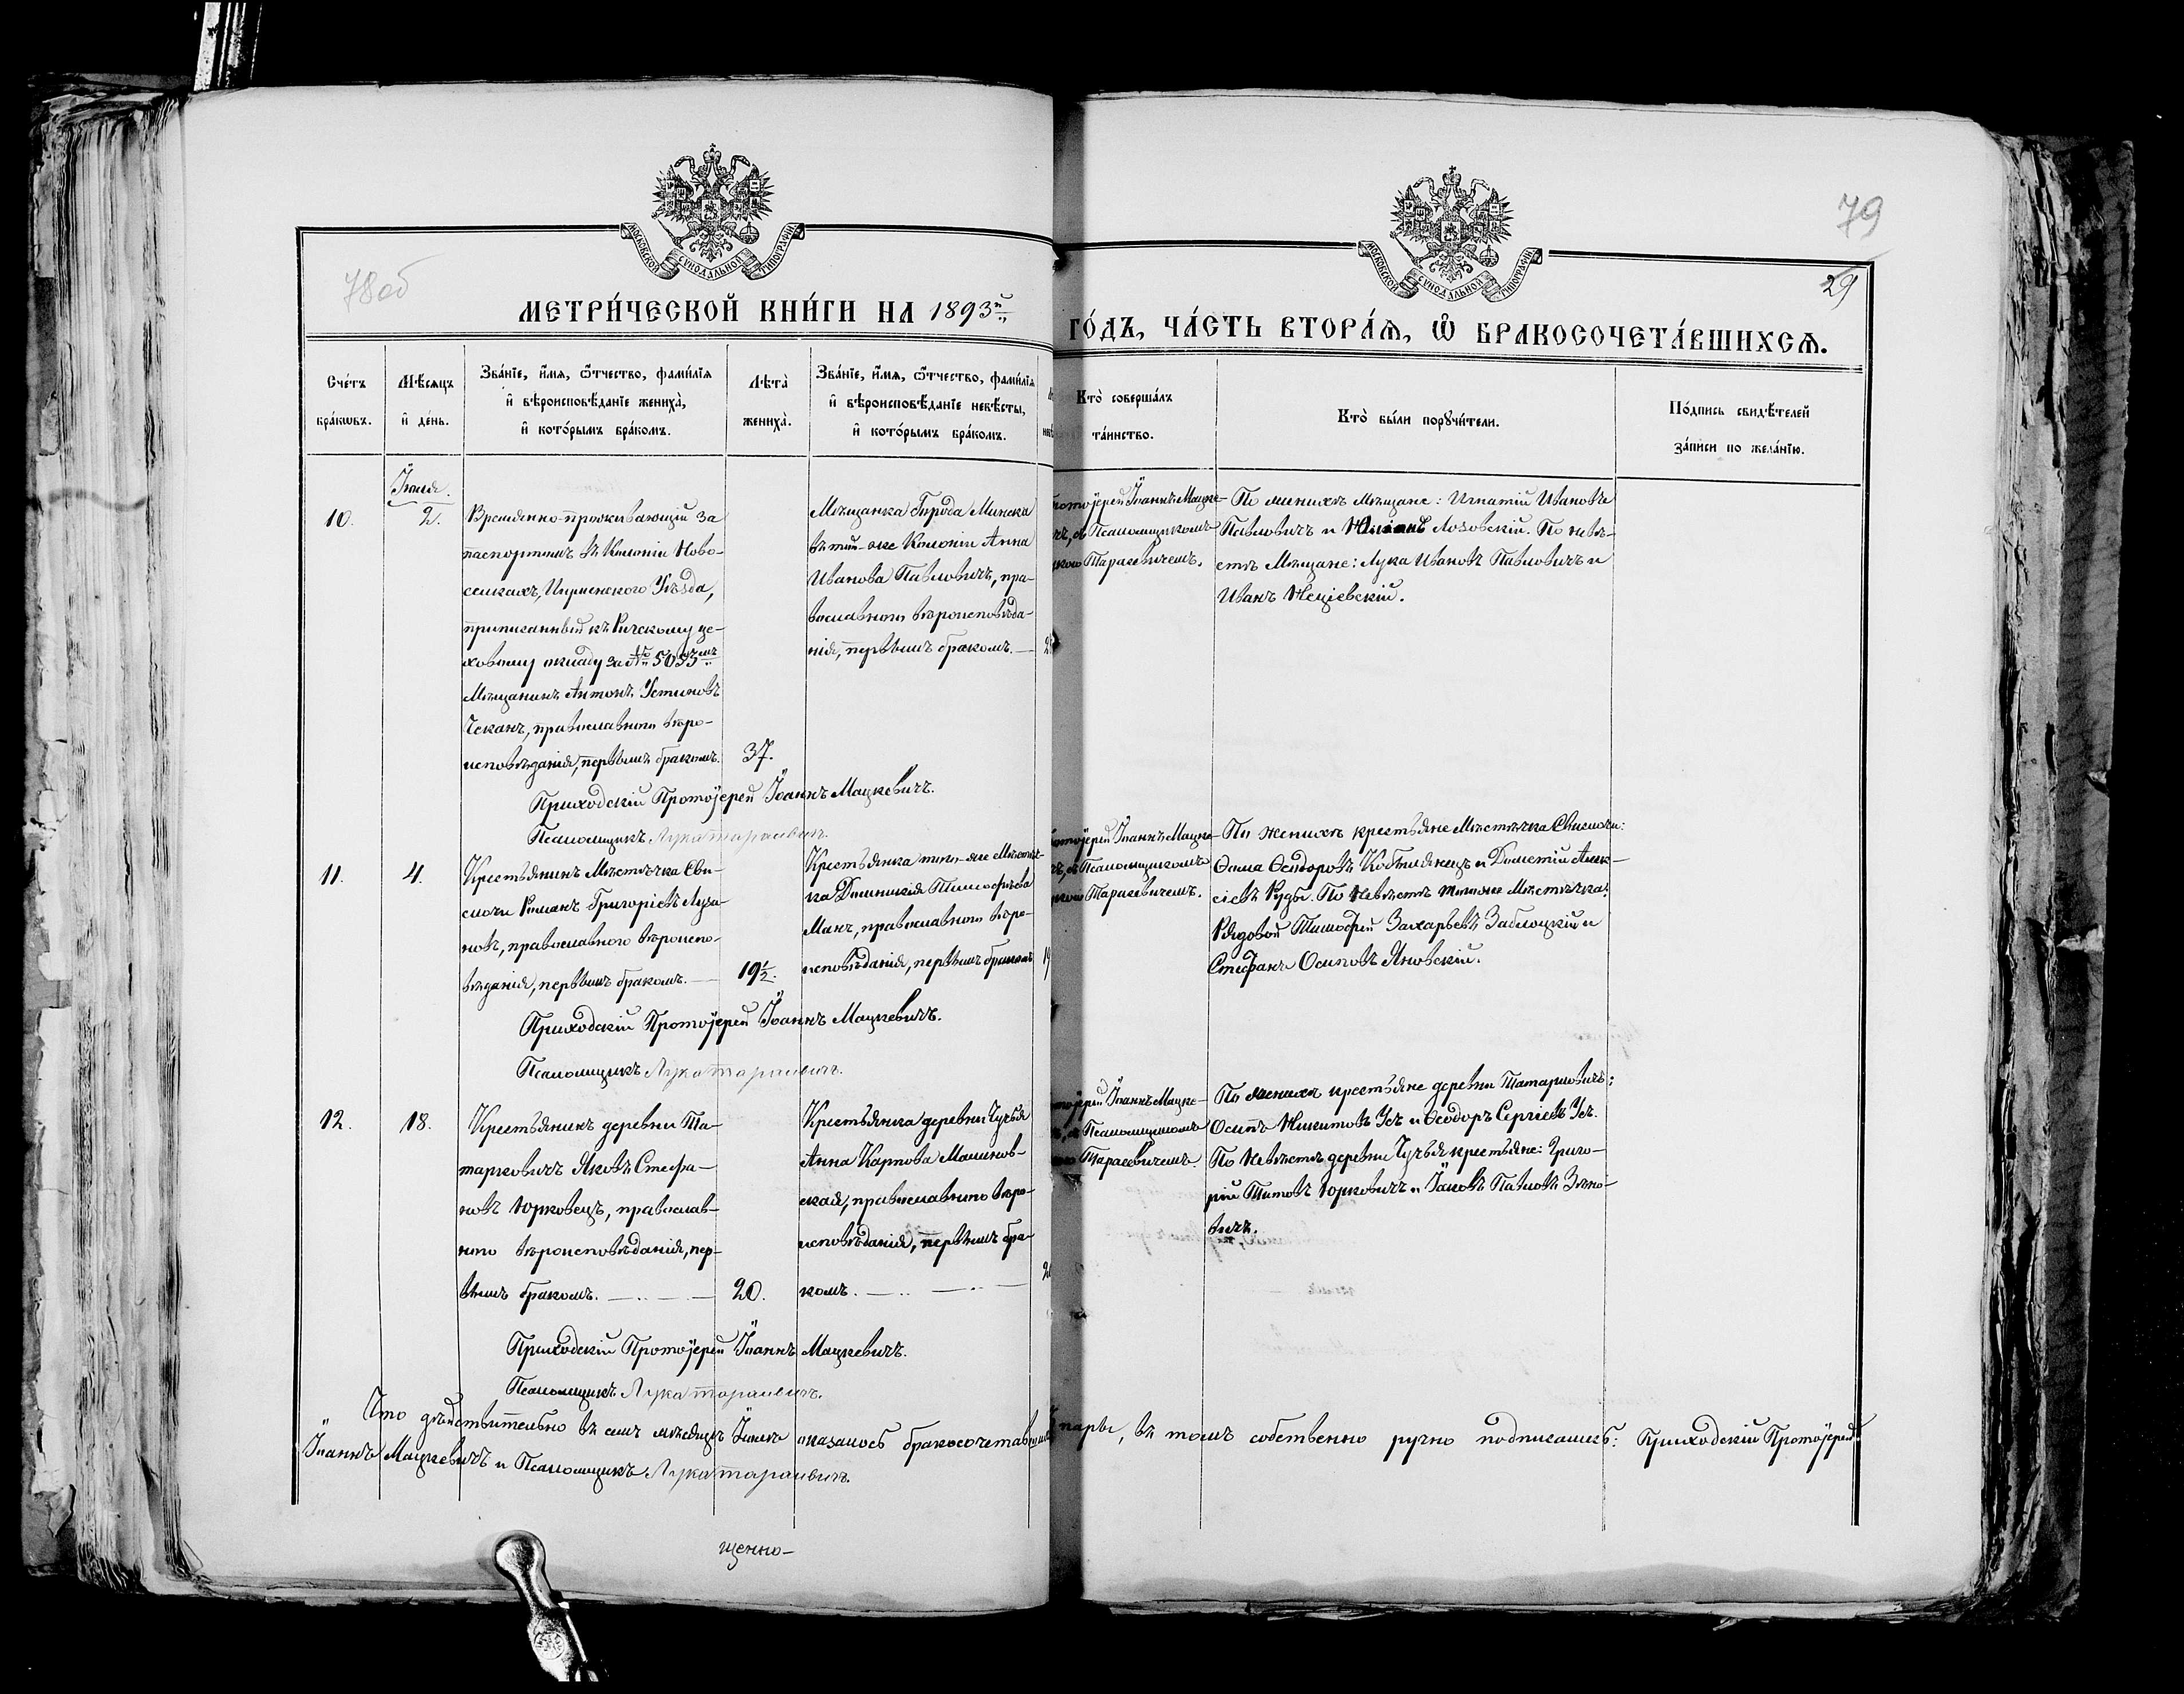 78об
79
29
МОСКОВСКОЙ СѴНОДАЛЬНОЙ ТИПОГРАФІИ
МОСКОВСКОЙ СѴНОДАЛЬНОЙ ТИПОГРАФІИ
МЕТРИ́ЧЕСКОЙ КНИ́ГИ НА 1893й
ГО́ДЪ, ЧА́СТЬ ВТОРА́Ѧ, Ѽ БРАКОСОЧЕТА́ВШИХСѦ.
Сче́тъ
бра́кѡвъ.
Мѣ́сѧцъ
и҆ де́нь.
Зва́нїе, и҆́мѧ, ѻ҆́тчество, фами́лїѧ
и҆ вѣроисповѣ́данїе жениха̀,
и҆ кото́рымъ бра́комъ.
Лѣ́та
жениха̀.
Зва́нїе, и҆́мѧ, ѻ҆́тчество, фами́лїѧ
и҆ вѣроисповѣ́данїе невѣ́сты,
и҆ кото́рымъ бра́комъ.
Кто̀ соверша́лъ
та́инство.
Кто̀ бы́ли порꙋчи́тели.
По́дпись свидѣ́телей
за́писи по жела́нїю.
10.
2.
Временно-проживающій за
паспортомъ въ Колоніи Ново-
селкахъ, Игуменскаго Уѣзда,
приписанный къ Рижскому це-
ховому окладу за № 5053мъ
Мѣщанинъ Антонъ Устиновъ
Чеканъ, православнаго вѣро-
исповѣданія, первымъ бракомъ.
37.
Мѣщанка Города Минска
въ той-же Колоніи Анна
Иванова Павловичъ, пра-
вославнаго вѣроисповѣда-
нія, первымъ бракомъ. —
Іоаннъ Мацке-
съ Псаломщикомъ
Тарасевичемъ.
По женихѣ Мѣщане: Игнатій Ивановъ
Павловичъ и Лозовскій. По невѣ-
стѣ Мѣщане: Лука Ивановъ Павловичъ и
Иванъ
Приходскій Протоіерей Іоаннъ Мацкевичъ.
Псаломщикъ Лука Тарасевичъ.
11.
4.
Крестьянинъ Мѣстечка Сви-
слочи Романъ Григорьевъ Луза-
новъ, православнаго вѣроиспо-
вѣданія, первымъ бракомъ. —
19½.
Крестьянка того-же Мѣстеч-
ка Домникія Тимофѣева
Манъ, православнаго вѣро-
исповѣданія, первымъ бракомъ
19
Іоаннъ Мацке-
съ Псаломщикомъ
Тарасевичемъ.
По женихѣ крестьяне Мѣстечка Свислочи:
Ѳома Ѳеодоровъ Кобылянецъ и Дометій Алек-
сіевъ Рудь. По невѣстѣ того-же Мѣстечка:
Рядовой Тимофей Захарьевъ Заблоцкій и
Стефанъ Осиповъ Яновскій.
Приходскій Протоіерей Іоаннъ Мацкевичъ.
Псаломщикъ Лука Тарасевичъ.
12.
18.
Крестьянинъ деревни Та-
тарковичъ Яковъ Стефа-
новъ Юрковецъ, православ-
наго вѣроисповѣданія, пер-
вымъ бракомъ. —
20.
Крестьянка деревни Чучья
Анна Карпова Малинов-
ская, православнаго вѣро-
исповѣданія, первымъ бра-
комъ. —
Іоаннъ Мацке-
съ Псаломщикомъ
Тарасевичемъ.
По женихѣ крестьяне деревни Татарковичъ:
Осипъ Никитовъ Усъ и Ѳеодоръ Сергіевъ Усъ.
По невѣстѣ деревни Чучья крестьяне: Григо-
рій Титовъ Юрковичъ и Іаковъ Павловъ Зѣно-
вичъ.
Приходскій Протоіерей Іоаннъ Мацкевичъ.
Псаломщикъ Лука Тарасевичъ.
Что дѣйствительно въ семъ мѣсяцѣ оказалось бракосочетавши пары, въ томъ собственно ручно подписались: Приходскій Протоіерей
Іоаннъ Мацкевичъ и Псаломщикъ Лука Тарасевичъ.
щенно-